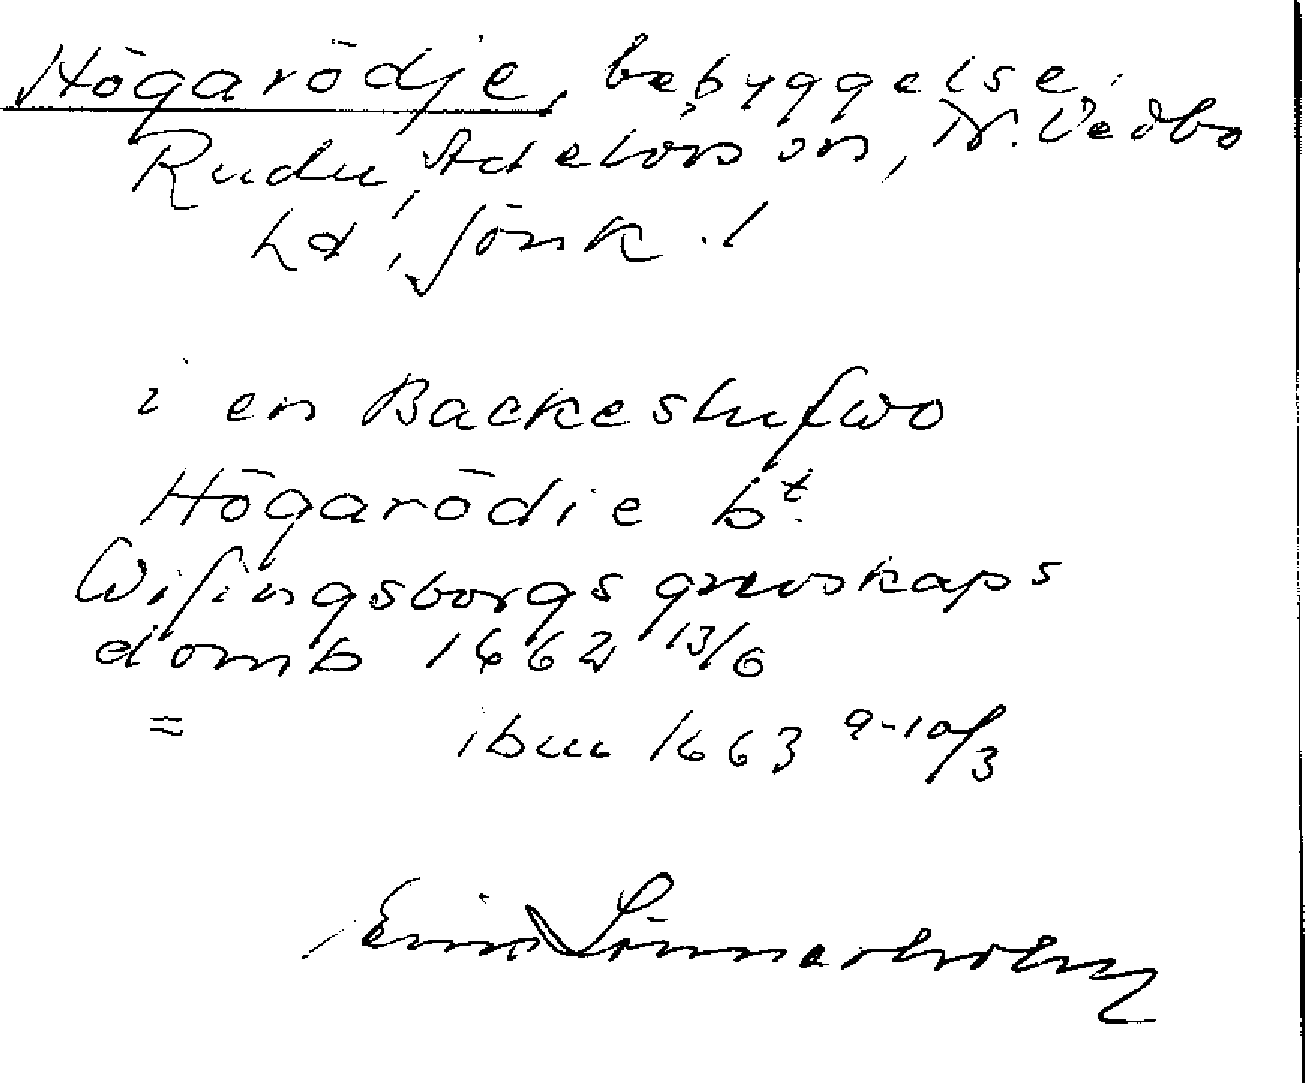 Högarödje, bebyggelse,
Rudu, Adelövs sn, N. Vedbo
hd, Jönk. l
i en Backestufwo
Högarödie bt.
Wisingsborgs grevskaps
domb 1662 13/6
= ibm 1663 9-10/3
Linnarholm